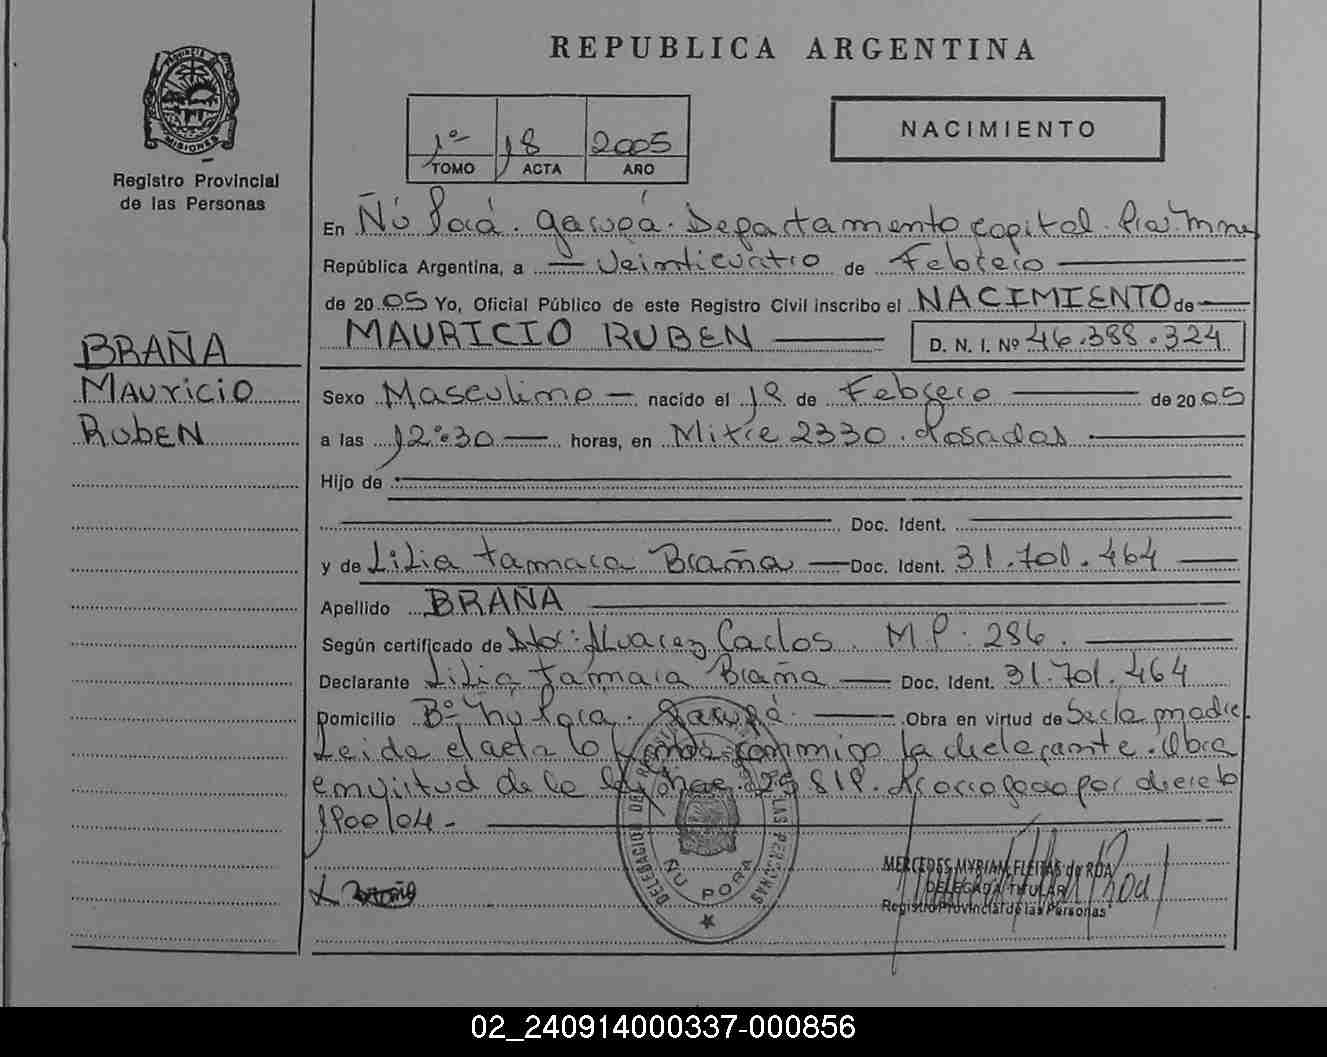 REPUBLICA ARGENTINA
PROVINCIA
MISIONES
Registro Provincial
de las Personas
1º 18 2005
TOMO ACTA AÑO
NACIMIENTO
En Ñú Porá. Garupá. Departamento Capital.
República Argentina, a Veinticuatro de Febrero
de 2005 Yo, Oficial Público de este Registro Civil inscribo el NACIMIENTO de
MAURICIO RUBEN D. N. I. Nº 46.388.324
BRAÑA
Mauricio
RubEN
Sexo Masculino nacido el de Febrero de 2005
a las 12:30 horas, en Mitre 2330. Posadas
Hijo de
Doc. Ident.
y de Lilia Tamara Braña Doc. Ident. 31.701.464
Apellido BRAÑA
Según certificado de Alvarez Carlos. M.P. 286.
Declarante Lilia Tamara Braña Doc. Ident. 31.701.464
Domicilio Bº Ñú Porá. Garupá. Obra en virtud de Ser la madre.
Leida el acta la conmigo la declarante. Obra
en virtud de la por decreto
1900/04-
DELEGACION DE LAS PERSONAS
ÑU PORA
MERCEDES MYRIAM FLEITAS de ROA
DELEGADA TITULAR
Registro Provincial de las Personas
02_240914000337-000856